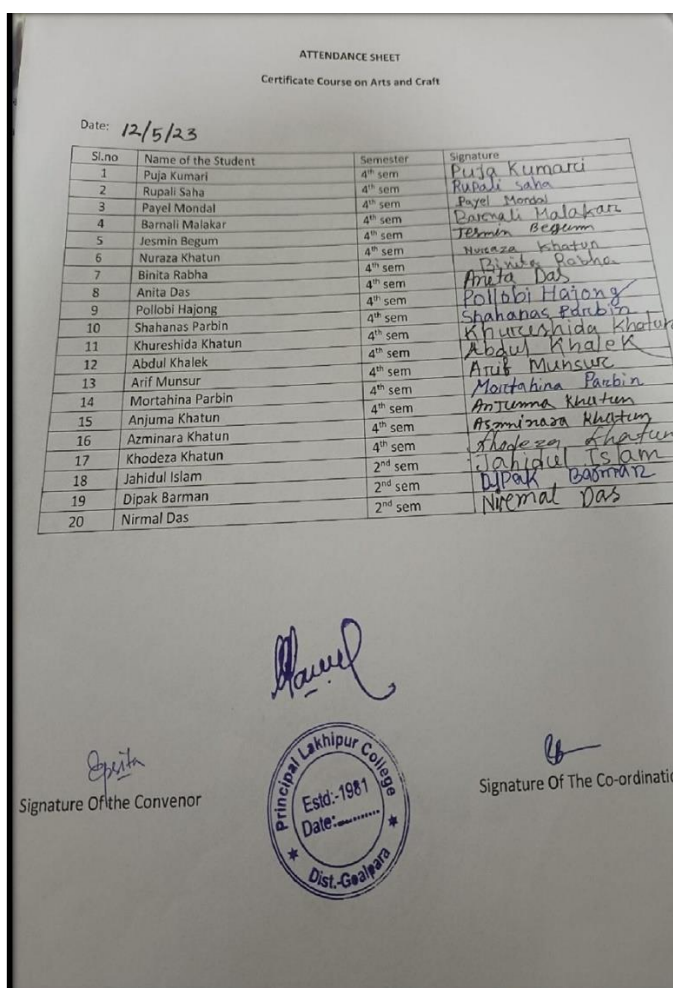 ATTENDANCE SHEET
Certificate Course on Arts and Craft
Date: 12/5/23
Sl.no Name of the Student Semester Signature
1 Puja Kumari 4th sem Puja Kumari
2 Rupali Saha 4th sem Rupali Saha
3 Payel Mondal 4th sem Payel Mondal
4 Barnali Malakar 4th sem Barnali Malakar
5 Jesmin Begum 4th sem Jesmin Begum
6 Nuraza Khatun 4th sem Nuraza Khatun
7 Binita Rabha 4th sem Binita Rabha
8 Anita Das 4th sem Anita Das
9 Pollobi Hajong 4th sem Pollobi Hajong
10 Shahanas Parbin 4th sem Shahanas Parbin
11 Khureshida Khatun 4th sem Khureshida Khatun
12 Abdul Khalek 4th sem Abdul Khalek
13 Arif Munsur 4th sem Arif Munsur
14 Mortahina Parbin 4th sem Mortahina Parbin
15 Anjuma Khatun 4th sem Anjumma Khatun
16 Azminara Khatun 4th sem Asminara Khatun
17 Khodeza Khatun 4th sem Khodeza Khatun
18 Jahidul Islam 2nd sem Jahidul Islam
19 Dipak Barman 2nd sem Dipak Barman
20 Nirmal Das 2nd sem Nirmal Das
Principal Lakhipur College
Estd:-1981
Date:..........
Dist.-Goalpara
Signature Of the Convenor
Signature Of The Co-ordinatio